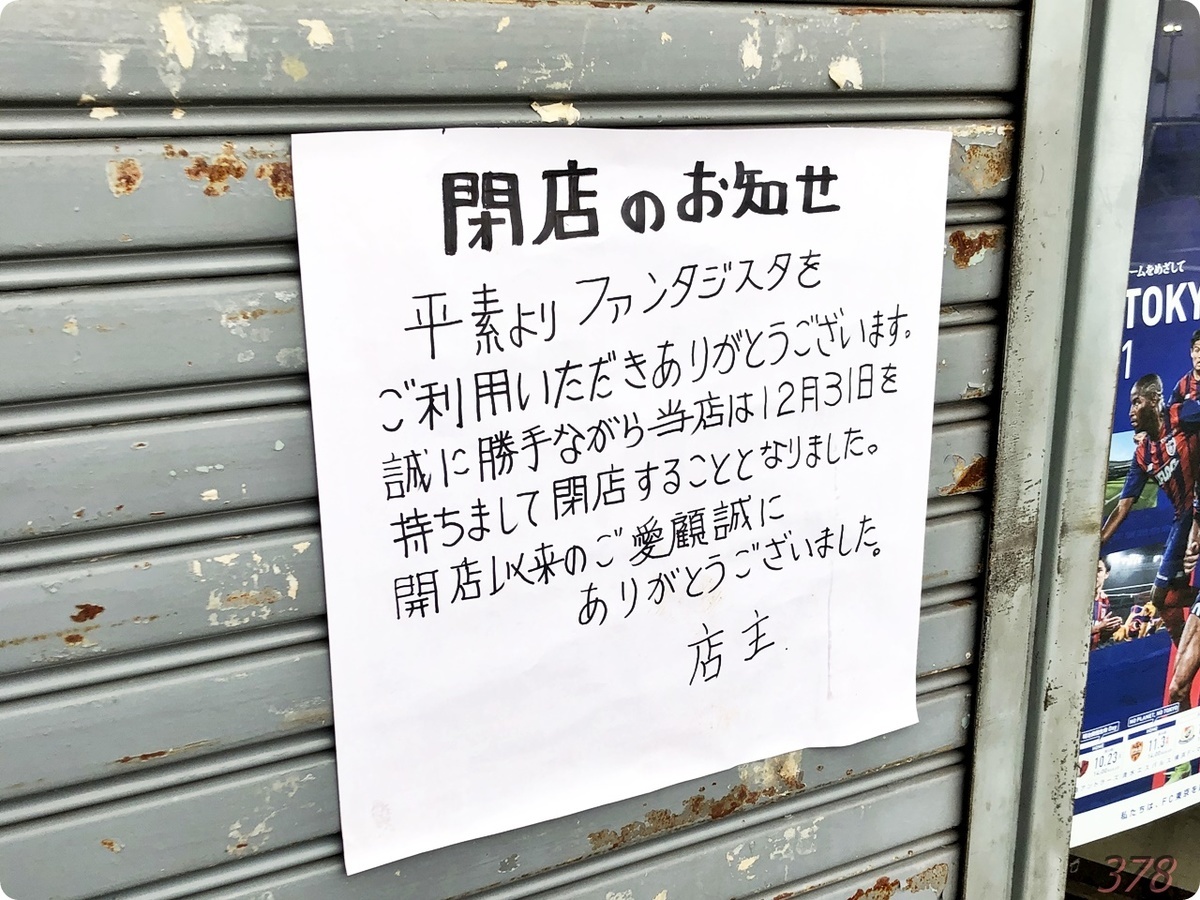 閉店のお知せ
平素よりファンタジスタを
ご利用いただきありがとうございます。
誠に勝手ながら当店は12月31日を
持ちまして閉店することとなりました。
開店以来のご愛顧誠に
ありがとうございました。
店主.
ームをめざして
TOKY
1
10.23
11.3
私たちは、FC東京を
378